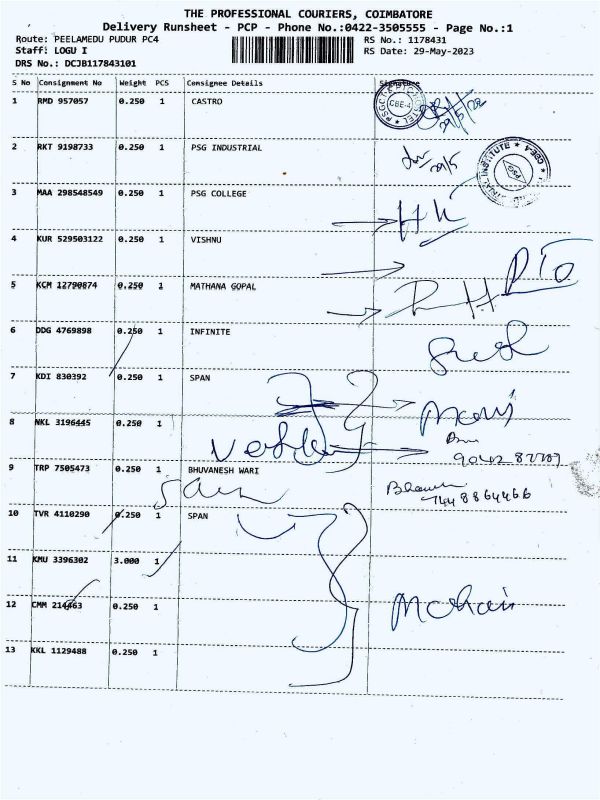 THE PROFESSIONAL COURIERS, COIMBATORE
Delivery Runsheet - PCP - Phone No.:0422-3505555 - Page No.:1
Route: PEELAMEDU PUDUR PC4 RS No.: 1178431
Staff: LOGU I RS Date: 29-May-2023
DRS No.: DCJB117843101
S No Consignment No Weight PCS Consignee Details Signature
1 RMD 957057 0.250 1 CASTRO
CBE-4
2 RKT 9198733 0.250 1 PSG INDUSTRIAL
3 MAA 298548549 0.250 1 PSG COLLEGE
4 KUR 529503122 0.250 1 VISHNU
PTO
5 KCM 12790874 0.250 1 MATHANA GOPAL
6 DDG 4769898 0.250 1 INFINITE
7 KDI 830392 0.250 1 SPAN
8 NKL 3196445 0.250 1
9 TRP 7505473 0.250 1 BHUVANESH WARI
7448864466
10 TVR 4110290 0.250 1 SPAN
11 KMU 3396302 3.000 1
12 CMM 214463 0.250 1
Mohan
13 KKL 1129488 0.250 1